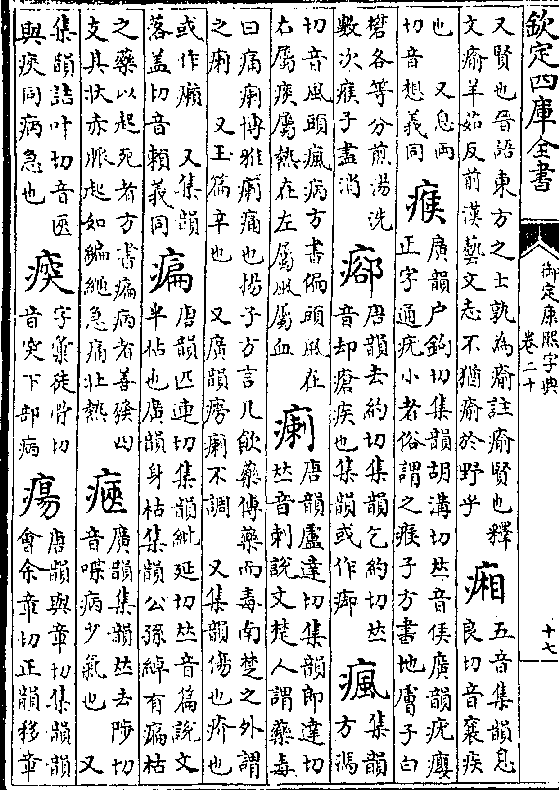 欽定四庫全書
御定康熙字典
卷二十
十七
又賢也晉語東方之士孰為瘉註瘉賢也釋
文瘉羊茹反前漢藝文志不猶瘉於野乎
五音集韻息
良切音襄疾
也 又息兩
切音想義同
瘊
廣韻户鈎切集韻胡溝切𠀤音侯廣韻疣癭
正字通疣小者俗謂之瘊子方書地膚子白
礬各等分煎湯洗
數次瘊子盡消
唐韻去約切集韻乞約切𠀤
音却瘡疾也集韻或作
瘋
集韻
方馮
切音風頭瘋病方書偏頭風在
右屬痰屬熱在左屬風屬血
瘌
唐韻盧達切集韻郎達切
𠀤音剌說文楚人謂藥毒
曰痛瘌博雅瘌痛也揚子方言凡飲藥傅藥而毒南楚之外謂
之瘌 又玉篇辛也 又廣韻瘌不調 又集韻傷也疥也
或作癩 又集韻
落蓋切音賴義同
㾫
唐韻匹連切集韻紕延切𠀤音篇說文
半枯也廣韻身枯集韻公孫綽有㾫枯
之藥以起死者方書㾫病者善發四
支其狀亦脈起如編繩急痛壯熱
廣韻集韻𠀤去陟切
音病少氣也 又
集韻詰叶切音匧
與痰同病急也
字彙徒骨切
音突下部病
瘍
唐韻與章切集韻韻
會余章切正韻移章